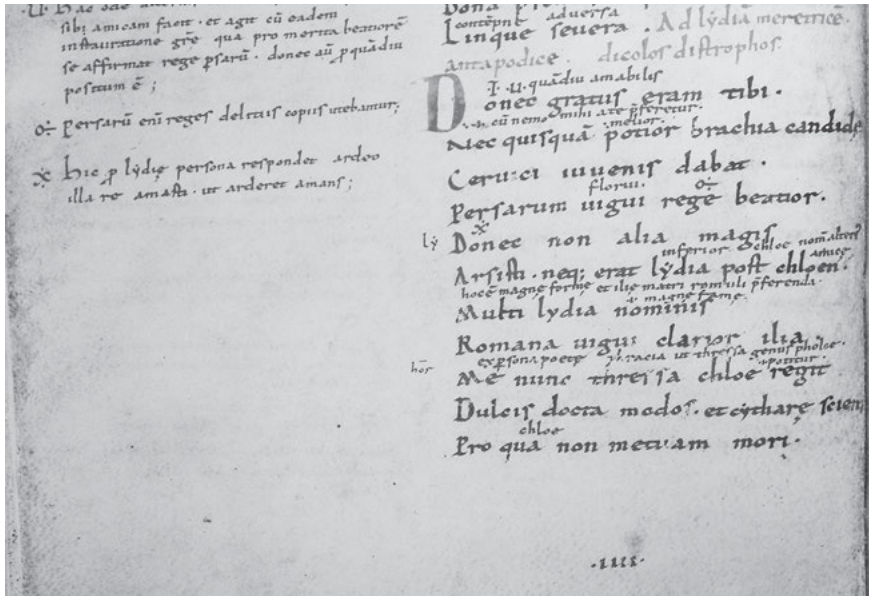 sibi amicam facit · et agit cū eadem
instauratione grę qua pro merita beatiorē
se affirmat rege psarū · donec aū pquādiu
positum ē ;
Persarū enī reges delitiis copiis utebantur;
hic p lydię persona respondet ardeo
illa re amasti · ut arderet amans ;
contēpnę adversa
Linque severa . Ad lydiā meretricē.
antapodice . dicolos distrophos.
·I· ·u· quādiu amabilis
Donec gratus eram tibi .
cū nemo mihi ate pferetur.
melior.
Nec quisquā potior brachia candidę
Cervici iuvenis dabat .
florui.
Persarum uigui rege beatior.
ly Donec non alia magis
inferior chloe
Arsisti · neq; erat lydia post chloen.
hocē magnę formę et ilię matri romuli pferenda.
magnę famę
Multi lydia nominis
Romana uigui clarior ilia.
ex persona poetę thracia ut thressa genus pholoe
hōr Me nunc thressa chloe regit
Dulcis docta modos · et cytharę scien
chloe
Pro qua non metuam mori ·
·IIII·